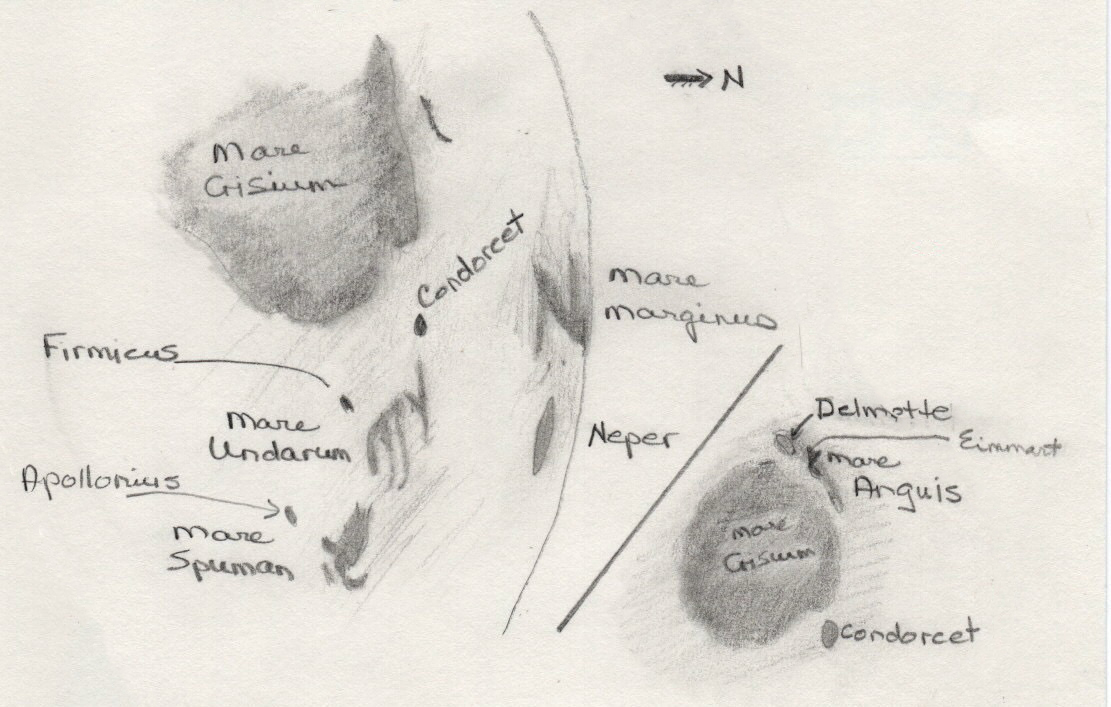 N
Mare
Crisium
Condorcet
Mare
Marginus
Firmicus
Mare
Undarum
Neper
Apollonius
Mare
Spuman
Delmotte
Eimmart
Mare
Anguis
Mare
Crisium
Condorcet